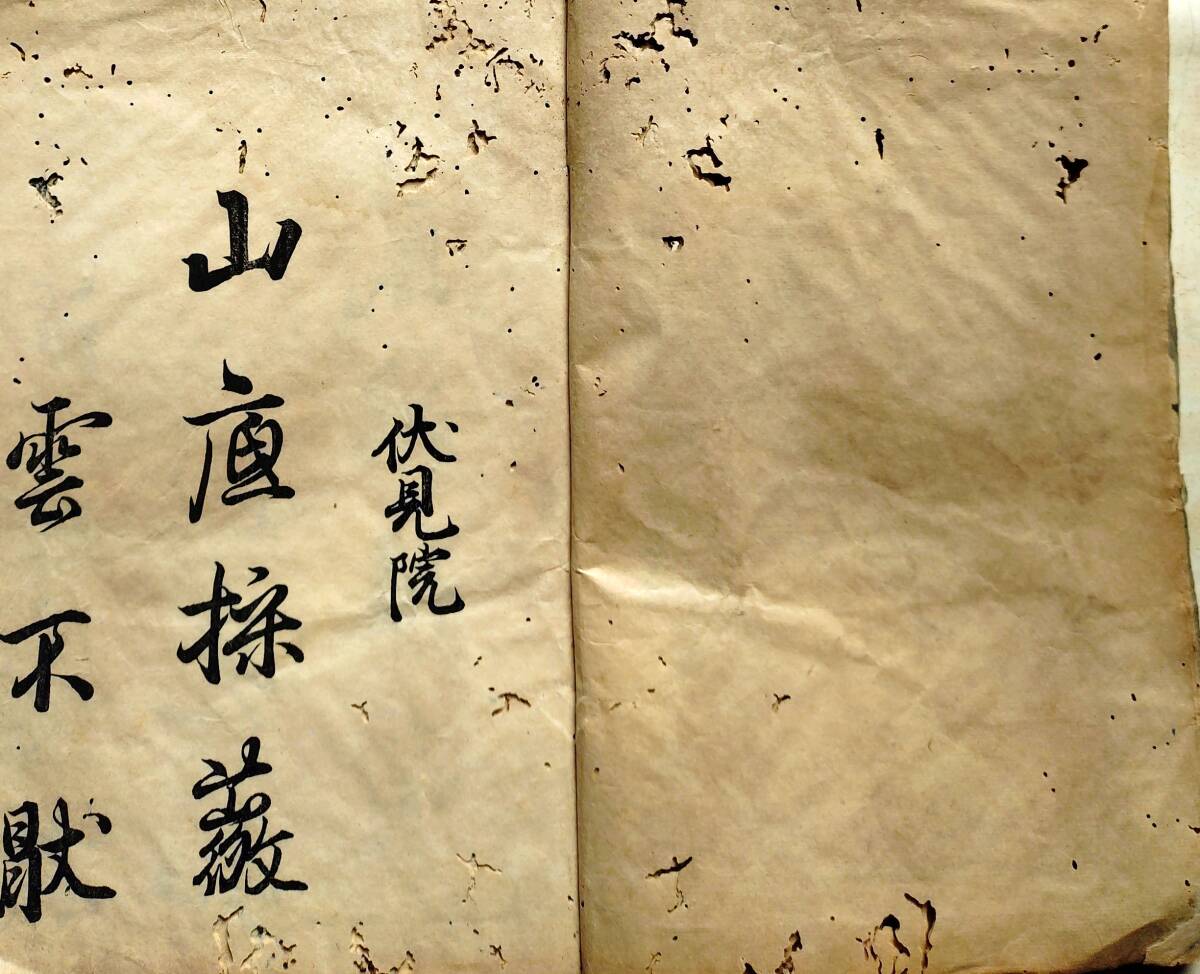 伏見院
山底採薇
雲不猒